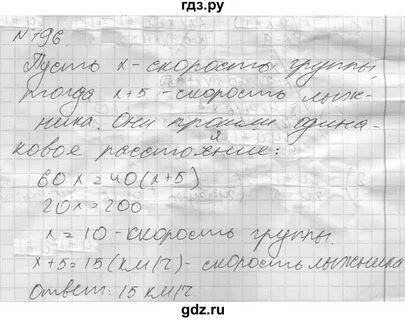 gdz.ru
N 796
Пусть x - скорость группы,
тогда x+5 - скорость лыж-
ника. Они прошли одина-
ковое расстояние:
60x=40(x+5)
20x=200
x=10 - скорость группы.
x+5=15 (км/ч) - скорость лыжника
ответ: 15 км/ч.
gdz.ru